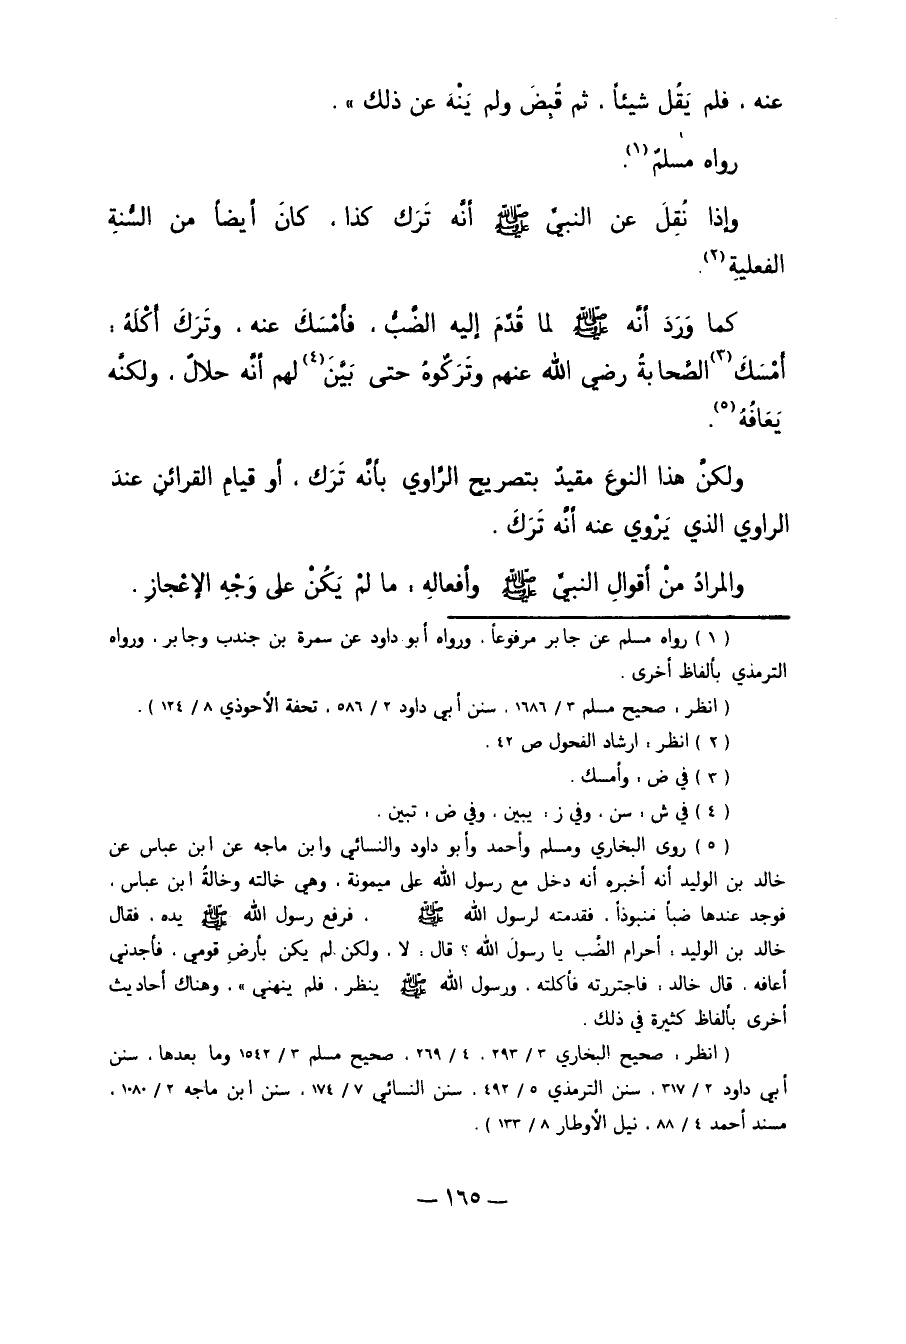 عنه ، فلم يَقُل شيئاً ، ثم قُبِضَ ولم يَنْهَ عن ذلك » .
رواه مسلمٌ(١).
وإذا نُقِلَ عن النبيِّ ﷺ أنَّه تَرَك كذا ، كانَ أيضاً من السُّنةِ
الفعليةِ(٢).
كما وَرَدَ أنَّه ﷺ لما قُدِّمَ إليه الضَّبُّ ، فأمْسَكَ عنه ، وتَرَكَ أكْلَهُ :
أمْسَكَ(٣) الصَّحابةُ رضي الله عنهم وتَرَكُوهُ حتى بَيَّنَ(٤) لهم أنَّه حلالٌ ، ولكنَّه
يَعَافُهُ(٥).
ولكنَّ هذا النوعَ مقيدٌ بتصريحِ الرَّاوي بأنَّه تَرَك ، أو قيامِ القرائنِ عندَ
الراوي الذي يَرْوي عنه أنَّه تَرَكَ .
والمرادُ منْ أقوالِ النبيِّ ﷺ وأفعالِهِ : ما لمْ يَكُنْ على وَجْهِ الإعْجازِ .
( ١ ) رواه مسلم عن جابر مرفوعاً ، ورواه أبو داود عن سمرة بن جندب وجابر ، ورواه
الترمذي بألفاظ أخرى .
( انظر : صحيح مسلم ٣ / ١٦٨٦ ، سنن أبي داود ٢ / ٥٨٦ ، تحفة الأحوذي ٨ / ١٢٤ ) .
( ٢ ) انظر : ارشاد الفحول ص ٤٢ .
( ٣ ) في ض : وأمسك .
( ٤ ) في ش : سن ، وفي ز : يبين ، وفي ض : تبين .
( ٥ ) روى البخاري ومسلم وأحمد وأبو داود والنسائي وابن ماجه عن ابن عباس عن
خالد بن الوليد أنه أخبره أنه دخل مع رسول الله على ميمونة ، وهي خالته وخالةُ ابن عباس ،
فوجد عندها ضباً منبوذاً ، فقدمته لرسول الله ﷺ ، فرفع رسول الله ﷺ يده ، فقال
خالد بن الوليد : أحرام الضَّب يا رسولَ الله ؟ قال : لا ، ولكن لم يكن بأرضِ قومي ، فأجدني
أعافه ، قال خالد : فاجتررته فأكلته ، ورسول الله ﷺ ينظر ، فلم ينهني » ، وهناك أحاديث
أخرى بألفاظ كثيرة في ذلك .
( انظر : صحيح البخاري ٣ / ٢٩٣ ، ٤ / ٢٦٩ ، صحيح مسلم ٣ / ١٥٤٢ وما بعدها ، سنن
أبي داود ٢ / ٣١٧ ، سنن الترمذي ٥ / ٤٩٢ ، سنن النسائي ٧ / ١٧٤ ، سنن ابن ماجه ٢ / ١٠٨٠ ،
مسند أحمد ٤ / ٨٨ ، نيل الأوطار ٨ / ١٣٣ ) .
— ١٦٥ —